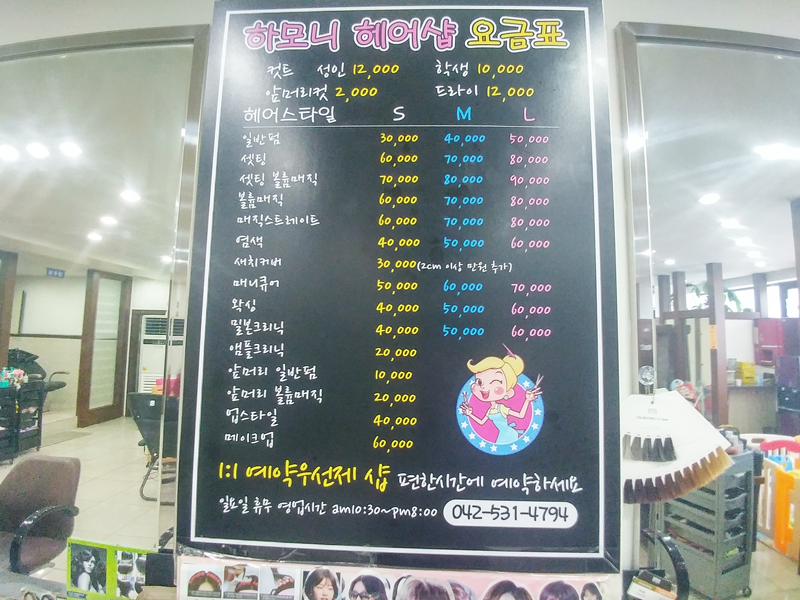 하모니 헤어샵 요금표
컷트 성인 12,000 학생 10,000
앞머리컷 2,000 드라이 12,000
헤어스타일 S M L
일반펌 30,000 40,000 50,000
셋팅 60,000 70,000 80,000
셋팅 볼륨매직 70,000 80,000 90,000
볼륨매직 60,000 70,000 80,000
매직스트레이트 60,000 70,000 80,000
염색 40,000 50,000 60,000
새치커버 30,000(2cm 이상 만원 추가)
매니큐어 50,000 60,000 70,000
왁싱 40,000 50,000 60,000
밀본크리닉 40,000 50,000 60,000
앰플크리닉 20,000
앞머리 일반펌 10,000
앞머리 볼륨매직 20,000
업스타일 40,000
메이크업 60,000
1:1 예약우선제 샵 편한시간에 예약하세요
일요일 휴무 영업시간 am10:30~pm8:00 042-531-4794